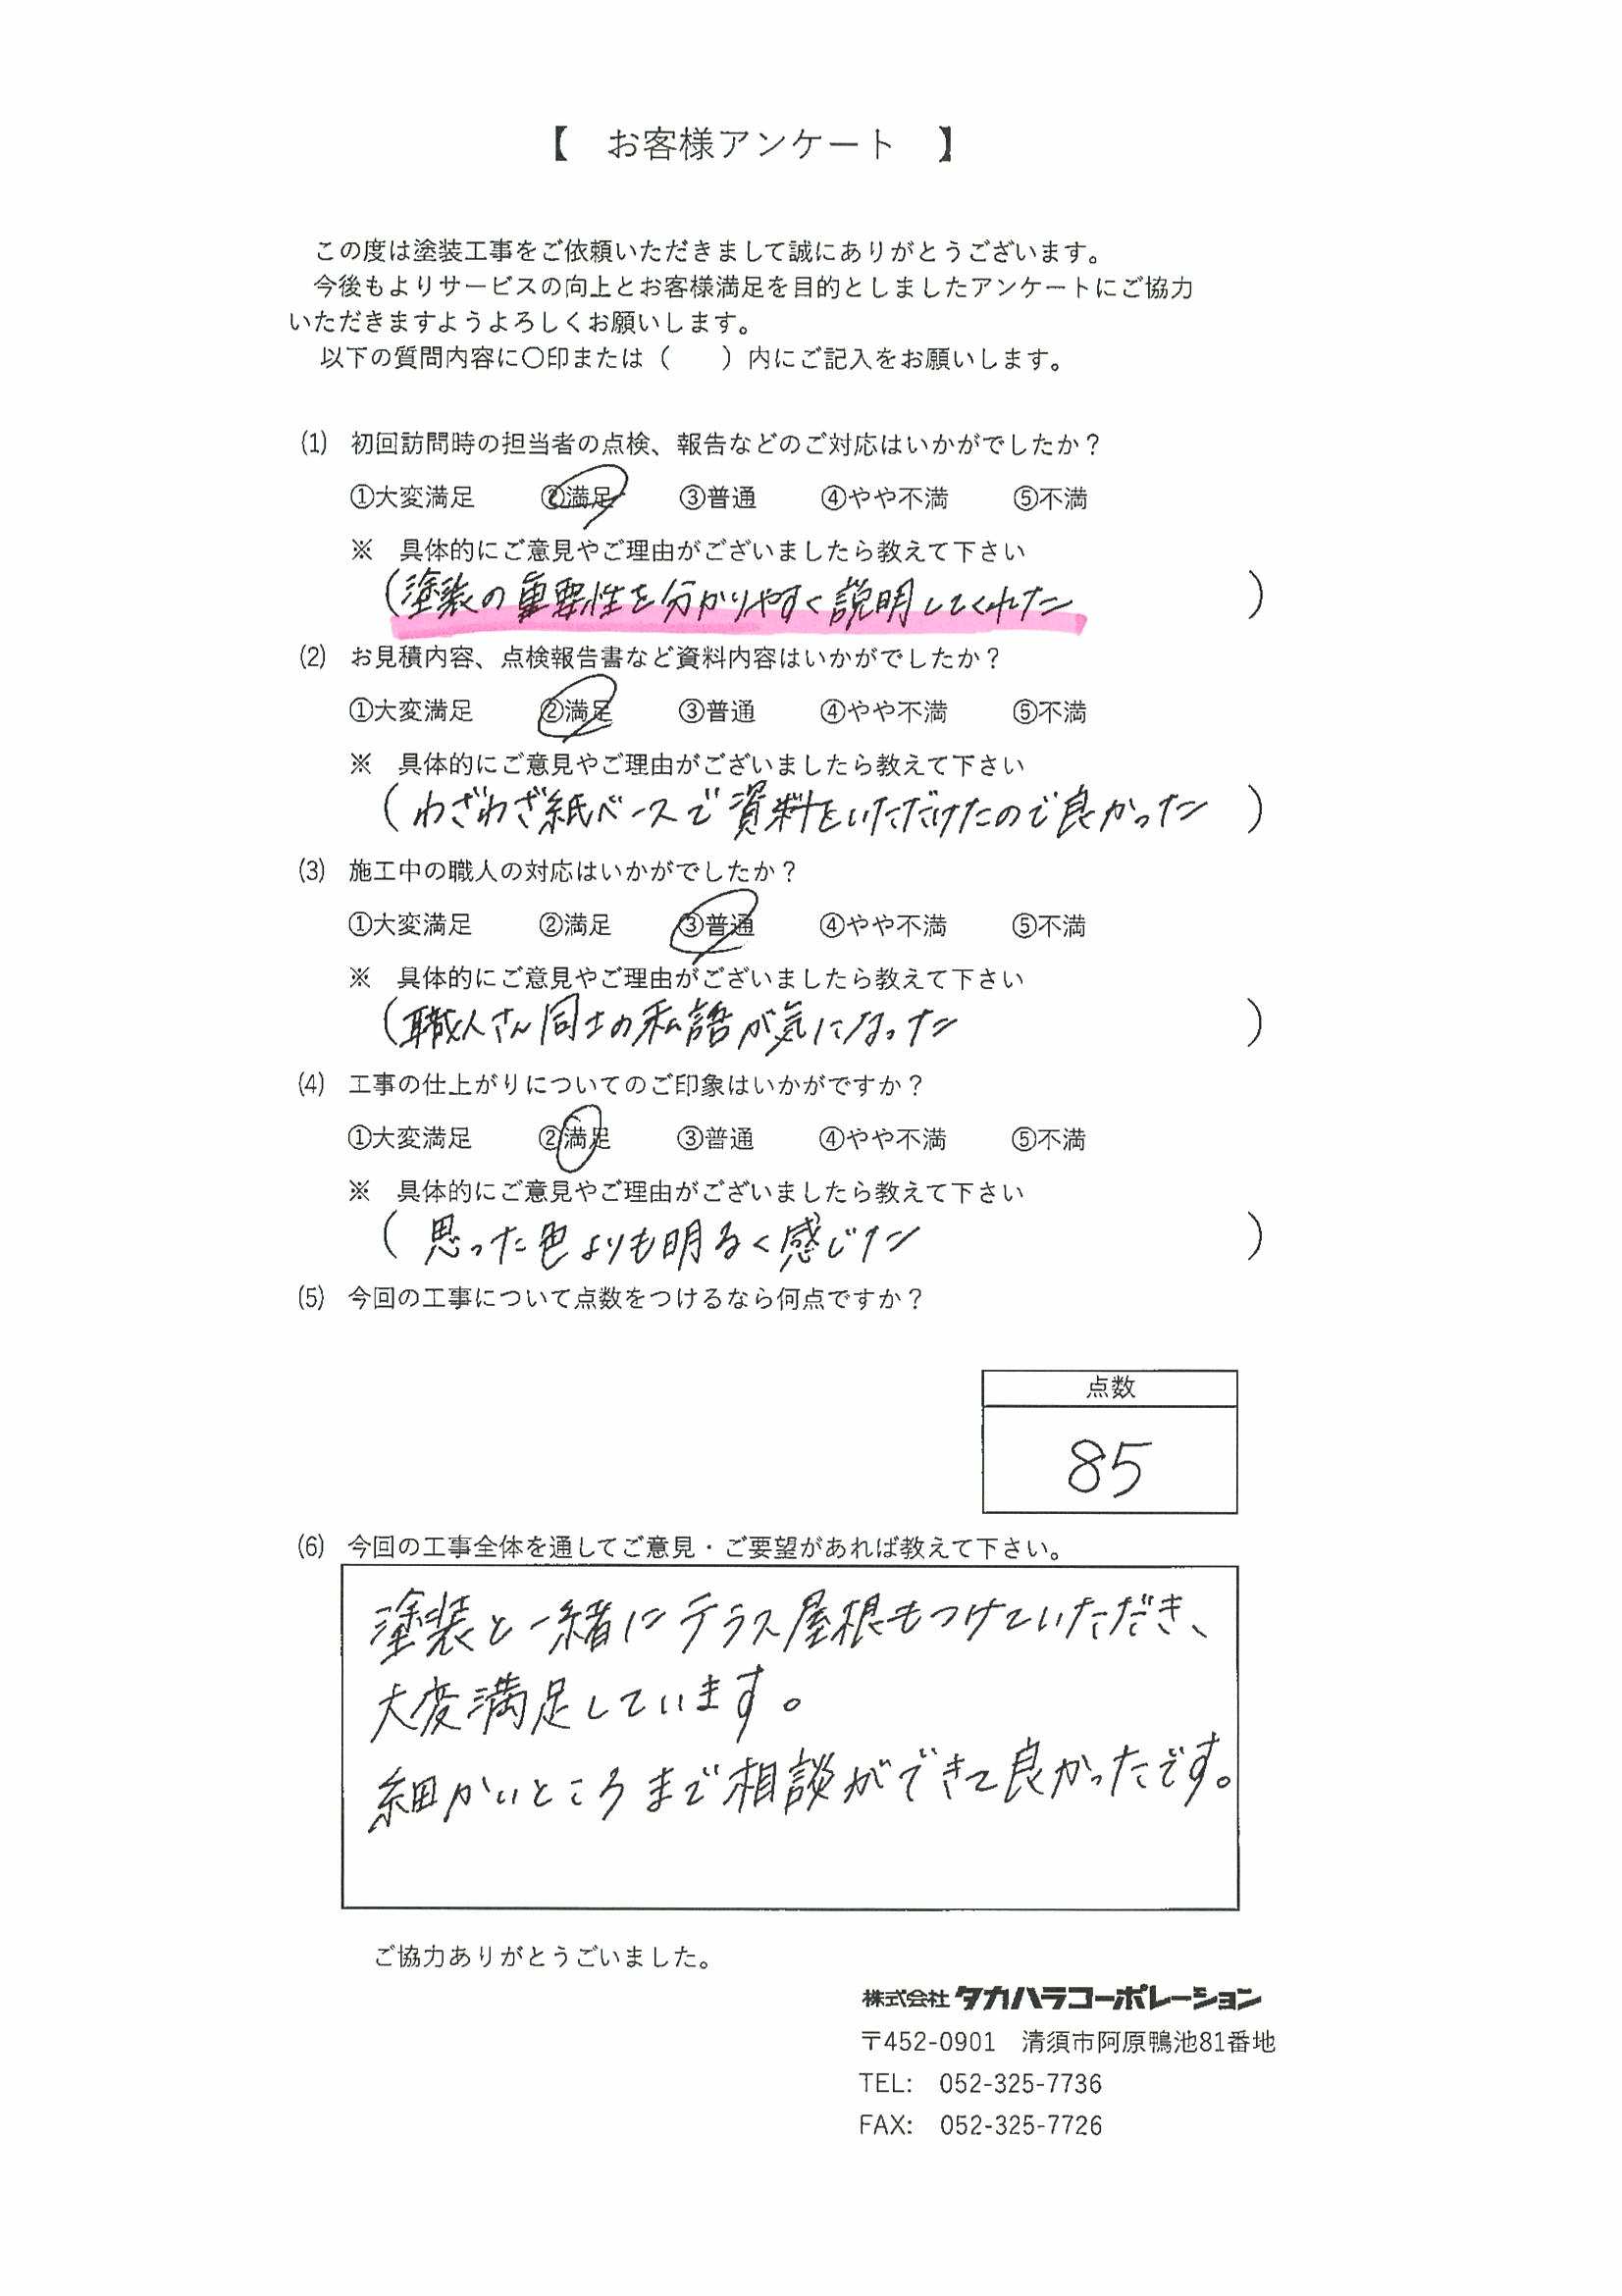 【　お客様アンケート　】
この度は塗装工事をご依頼いただきまして誠にありがとうございます。
今後もよりサービスの向上とお客様満足を目的としましたアンケートにご協力
いただきますようよろしくお願いします。
以下の質問内容に〇印または（　　）内にご記入をお願いします。
(1)　初回訪問時の担当者の点検、報告などのご対応はいかがでしたか？
①大変満足　②満足　③普通　④やや不満　⑤不満
※　具体的にご意見やご理由がございましたら教えて下さい
（塗装の重要性を分かりやすく説明してくれた）
(2)　お見積内容、点検報告書など資料内容はいかがでしたか？
①大変満足　②満足　③普通　④やや不満　⑤不満
※　具体的にご意見やご理由がございましたら教えて下さい
（わざわざ紙ベースで資料をいただけたので良かった）
(3)　施工中の職人の対応はいかがでしたか？
①大変満足　②満足　③普通　④やや不満　⑤不満
※　具体的にご意見やご理由がございましたら教えて下さい
（職人さん同士の私語が気になった）
(4)　工事の仕上がりについてのご印象はいかがですか？
①大変満足　②満足　③普通　④やや不満　⑤不満
※　具体的にご意見やご理由がございましたら教えて下さい
（思った色よりも明るく感じた）
(5)　今回の工事について点数をつけるなら何点ですか？
点数
85
(6)　今回の工事全体を通してご意見・ご要望があれば教えて下さい。
塗装と一緒にテラス屋根もつけていただき、
大変満足しています。
細かいところまで相談ができて良かったです。
ご協力ありがとうごいました。
株式会社 タカハラコーポレーション
〒452-0901　清須市阿原鴨池81番地
TEL:　052-325-7736
FAX:　052-325-7726